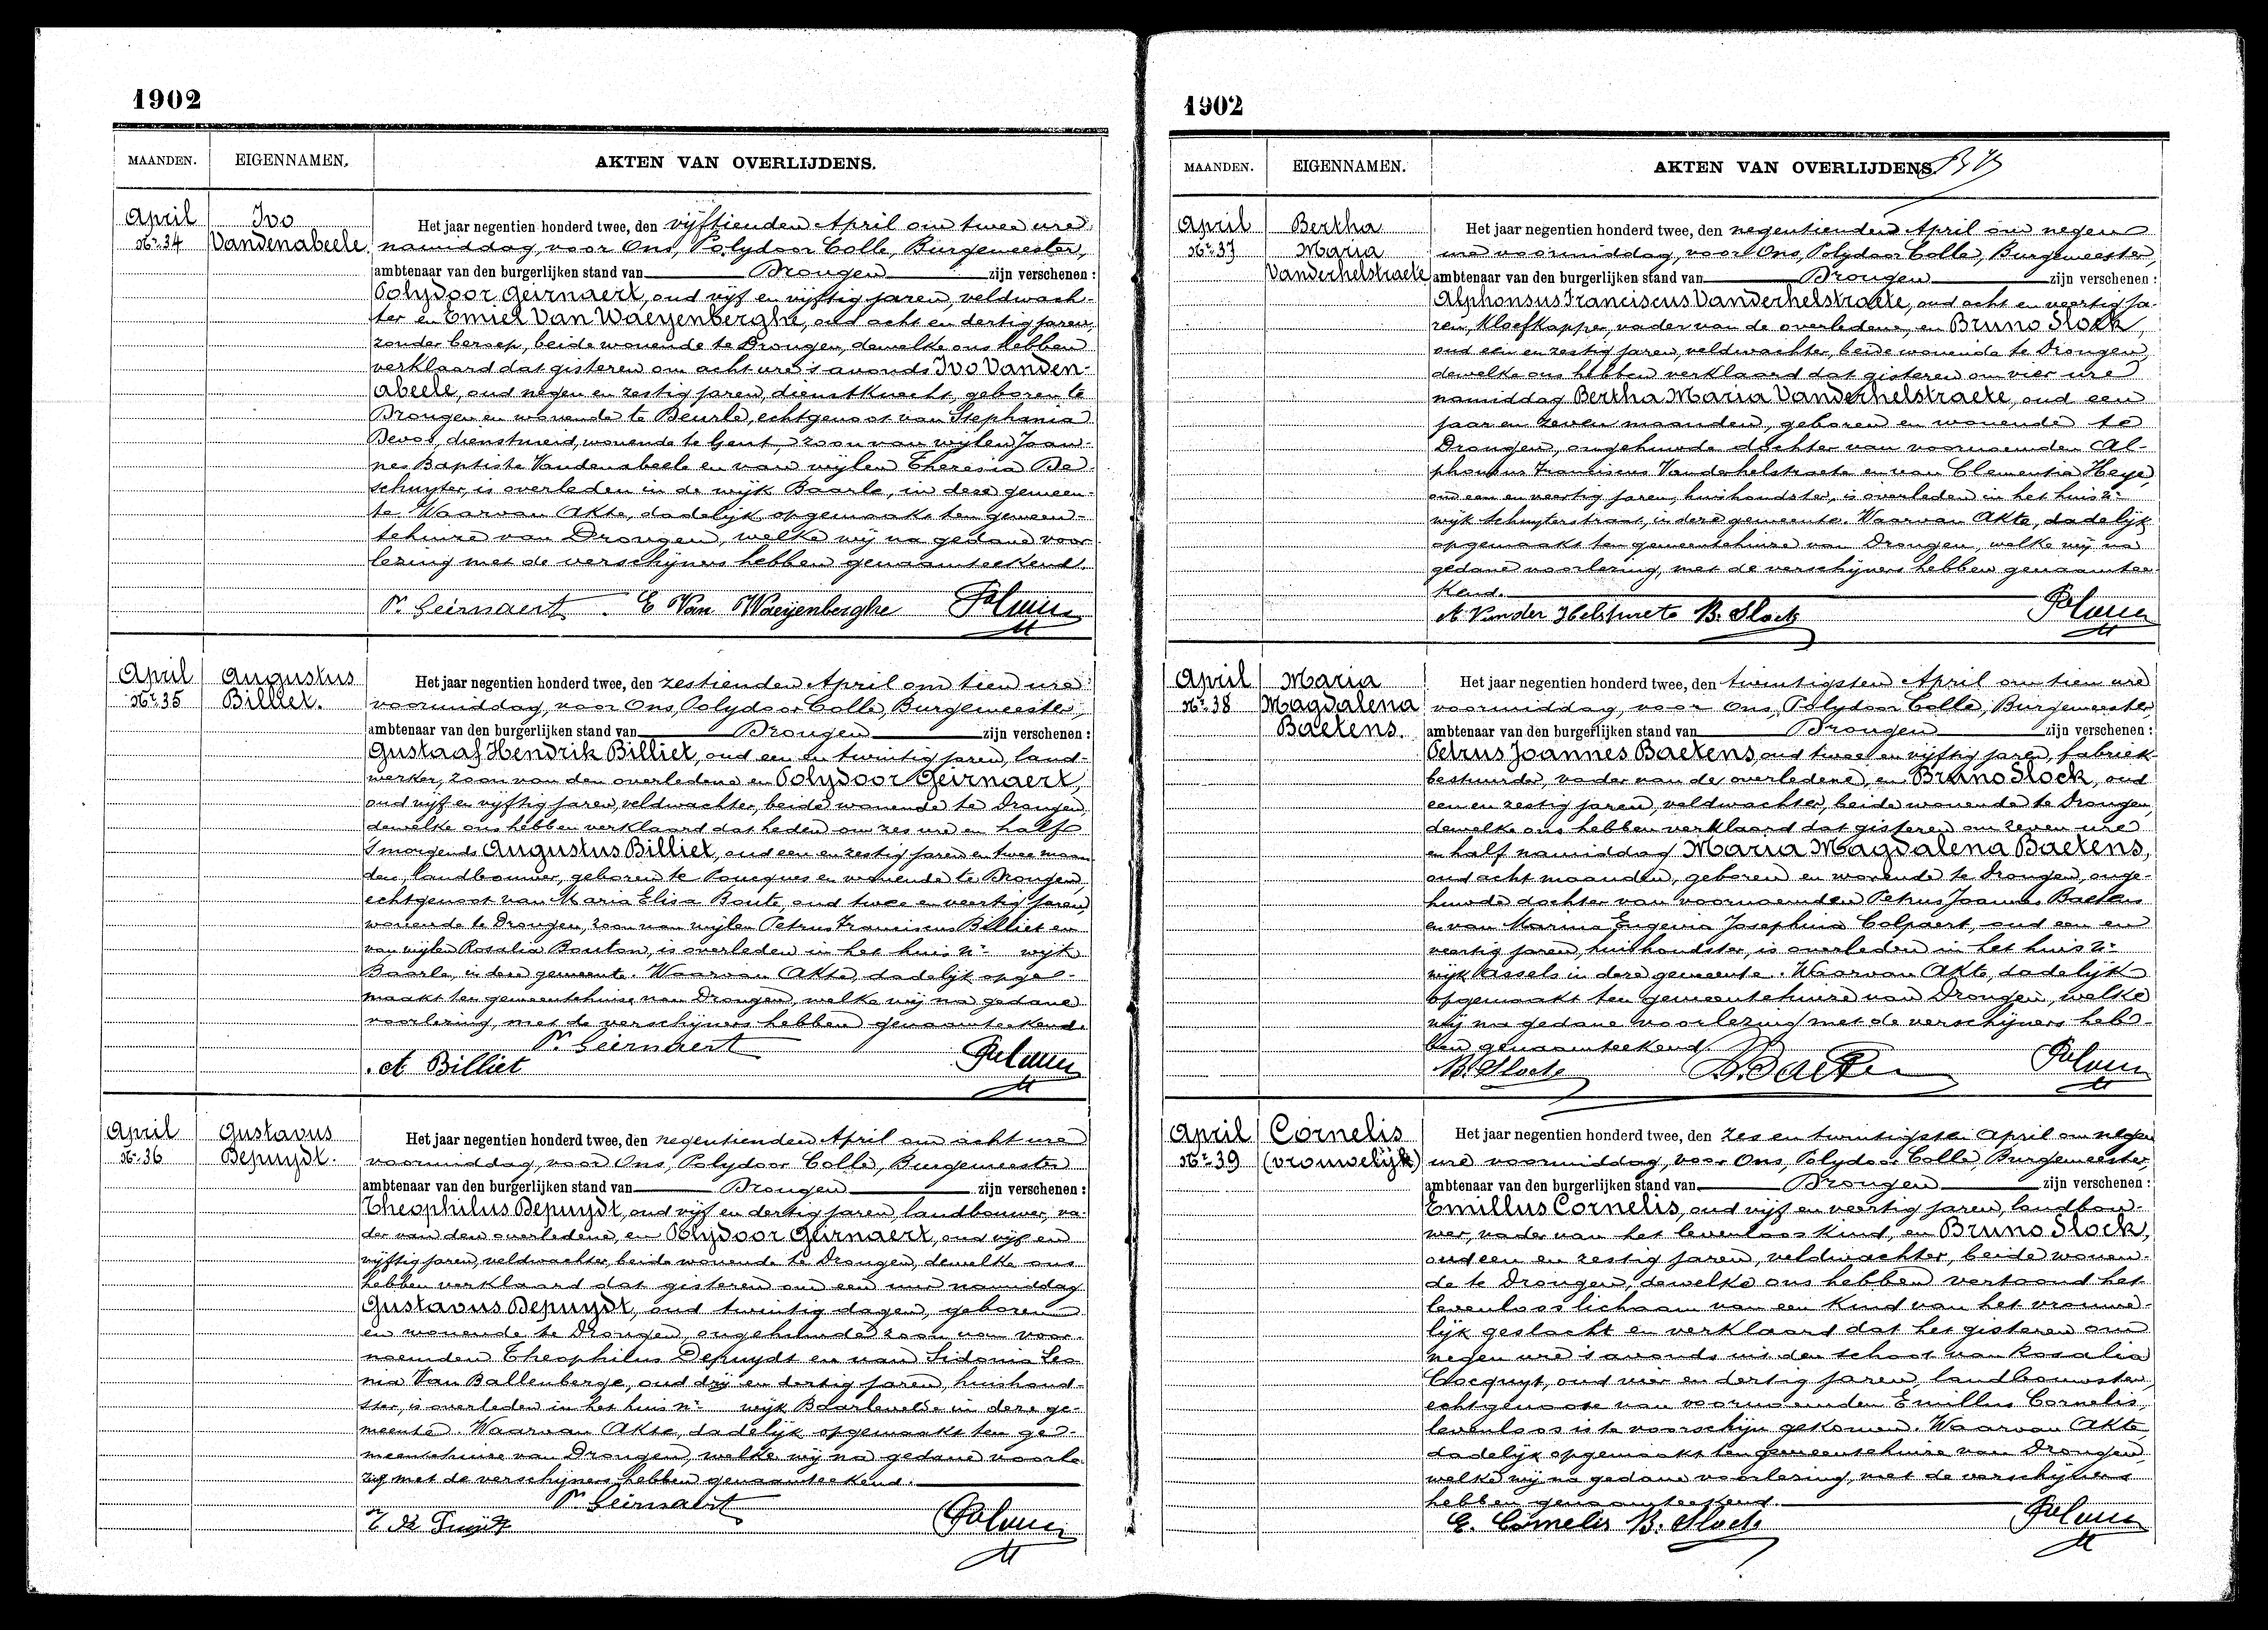 1902
MAANDEN.
EIGENNAMEN.
AKTEN VAN OVERLIJDENS.
April
Nr. 34
Ivo
Vandenabeele.
Het jaar negentien honderd twee, den vijftienden April om twee ure
namiddag, voor Ons, Polydoor Colle, Burgemeester,
ambtenaar van den burgerlijken stand van Drongen zijn verschenen :
Polydoor Geirnaert, oud vijf en vijftig jaren, veldwach-
ter en Emiel Van Waeyenberghe, oud acht en dertig jaren,
zonder beroep, beide wonende te Drongen, dewelke ons hebben
verklaard dat gisteren om acht ure 's avonds Ivo Vanden-
abeele, oud negen en zestig jaren, dienstknecht, geboren te
Drongen en wonende te Deurle, echtgenoot van Stephania
Devos, dienstmeid, wonende te Gent, zoon van wijlen Joan-
nes Baptiste Vandenabeele en van wijlen Theresia De
schuyter, is overleden in de wijk Baarle, in deze gemeen-
te. Waarvan Akte, dadelijk opgemaakt ten gemeen-
tehuize van Drongen, welke wij na gedane voor
lezing met de verschijners hebben genaamteekend.
P. Geirnaert E Van Waeyenberghe
April
Nr. 35
Augustus
Billiet.
Het jaar negentien honderd twee, den zestienden April om tien ure
voormiddag, voor Ons, Polydoor Colle, Burgemeester,
ambtenaar van den burgerlijken stand van Drongen zijn verschenen :
Gustaaf Hendrik Billiet, oud een en twintig jaren, land-
werker, zoon van den overledene en Polydoor Geirnaert,
oud vijf en vijftig jaren, veldwachter, beide wonende te Drongen,
dewelke ons hebben verklaard dat heden om zes ure en half
's morgends Augustus Billiet, oud een en zestig jaren en twee maan
den, landbouwer, geboren te Poucques en wonende te Drongen,
echtgenoot van Maria Elisa Boute, oud twee en veertig jaren,
wonende te Drongen, zoon van wijlen Petrus Franciscus Billiet en
van wijlen Rosalia Bouton, is overleden in het huis nr wijk
Baarle, in deze gemeente. Waarvan Akte, dadelijk opge-
maakt ten gemeentehuize van Drongen, welke wij na gedane
voorlezing, met de verschijners hebben genaamteekend.
P. Geirnaert
A Billiet
April
Nr. 36
Gustavus
Depuydt.
Het jaar negentien honderd twee, den negentienden April om acht ure
voormiddag, voor Ons, Polydoor Colle, Burgemeester
ambtenaar van den burgerlijken stand van Drongen zijn verschenen :
Theophilus Depuydt, oud vijf en dertig jaren, landbouwer, va-
der van den overledene, en Polydoor Geirnaert, oud vijf en
vijftig jaren, veldwachter, beide wonende te Drongen, dewelke ons
hebben verklaard dat gisteren om een ure namiddag
Gustavus Depuydt, oud twintig dagen, geboren
en wonende te Drongen, ongehuwde zoon van voor-
noemden Theophilus Depuydt en van Sidonia Leo
nia Van Ballenberge, oud drij en dertig jaren, huishoud-
ster, is overleden in het huis nr wijk Baarlevelde in deze ge-
meente. Waarvan Akte, dadelijk opgemaakt ten ge-
meentehuize van Drongen, welke wij na gedane voorle
zing met de verschijners hebben genaamteekend.
P. Geirnaert
1902
MAANDEN.
EIGENNAMEN.
AKTEN VAN OVERLIJDENS.
April
Nr. 37
Bertha
Maria
Vanderhelstraete
Het jaar negentien honderd twee, den negentienden April om negen
ure voormiddag, voor Ons, Polydoor Colle, Burgemeester,
ambtenaar van den burgerlijken stand van Drongen zijn verschenen :
Alphonsus Franciscus Vanderhelstraete, oud acht en veertig ja-
ren, kloefkapper, vader van de overledene, en Bruno Slock,
oud een en zestig jaren, veldwachter, beide wonende te Drongen,
dewelke ons hebben verklaard dat gisteren om vier ure
namiddag Bertha Maria Vanderhelstraete, oud een
jaar en zeven maanden, geboren en wonende te
Drongen, ongehuwde dochter van voornoemden Al-
phonsus Franciscus Vanderhelstraete en van Clementia Heye,
oud een en veertig jaren, huishoudster, is overleden in het huis nr
wijk Schuyterstraat, in deze gemeente. Waarvan Akte, dadelijk
opgemaakt ten gemeentehuize van Drongen, welke wij na
gedane voorlezing, met de verschijners hebben genaamtee-
kend.
A Vander Helstraete B. Slock
April
Nr. 38
Maria
Magdalena
Baetens.
Het jaar negentien honderd twee, den twintigsten April om tien ure
voormiddag, voor Ons, Polydoor Colle, Burgemeester
ambtenaar van den burgerlijken stand van Drongen zijn verschenen :
Petrus Joannes Baetens, oud twee en vijftig jaren, fabriek-
bestuurder, vader van de overledene, en Bruno Slock, oud
een en zestig jaren, veldwachter, beide wonende te Drongen,
dewelke ons hebben verklaard dat gisteren om zeven ure
en half namiddag Maria Magdalena Baetens,
oud acht maanden, geboren en wonende te Drongen, onge-
huwde dochter van voornoemden Petrus Joannes Baetens
en van Marina Eugenia Josephina Colpaert, oud een en
veertig jaren, huishoudster, is overleden in het huis nr
wijk Assels in deze gemeente. Waarvan Akte, dadelijk
opgemaakt ten gemeentehuize van Drongen, welke
wij na gedane voorlezing met de verschijners heb-
ben genaamteekend
B. Slock
April
Nr. 39
Cornelis
(vrouwelijk)
Het jaar negentien honderd twee, den zes en twintigsten April om negen
ure voormiddag, voor Ons, Polydoor Colle, Burgemeester,
ambtenaar van den burgerlijken stand van Drongen zijn verschenen :
Emillus Cornelis, oud vijf en veertig jaren, landbou-
wer, vader van het levenloos kind, en Bruno Slock,
oud een en zestig jaren, veldwachter, beide wonen-
de te Drongen, dewelke ons hebben vertoond het
levenloos lichaam van een kind van het vrouwe-
lijk geslacht en verklaard dat het gisteren om
negen ure 's avonds uit den schoot van Rosalia
Cocquyt, oud vier en dertig jaren, landbouwster,
echtgenoote van voornoemden Emillus Cornelis,
levenloos is te voorschijn gekomen. Waarvan Akte,
dadelijk opgemaakt ten gemeentehuize van Drongen,
welke wij na gedane voorlezing, met de verschijners
hebben genaamteekend.
E. Cornelis B. Slock